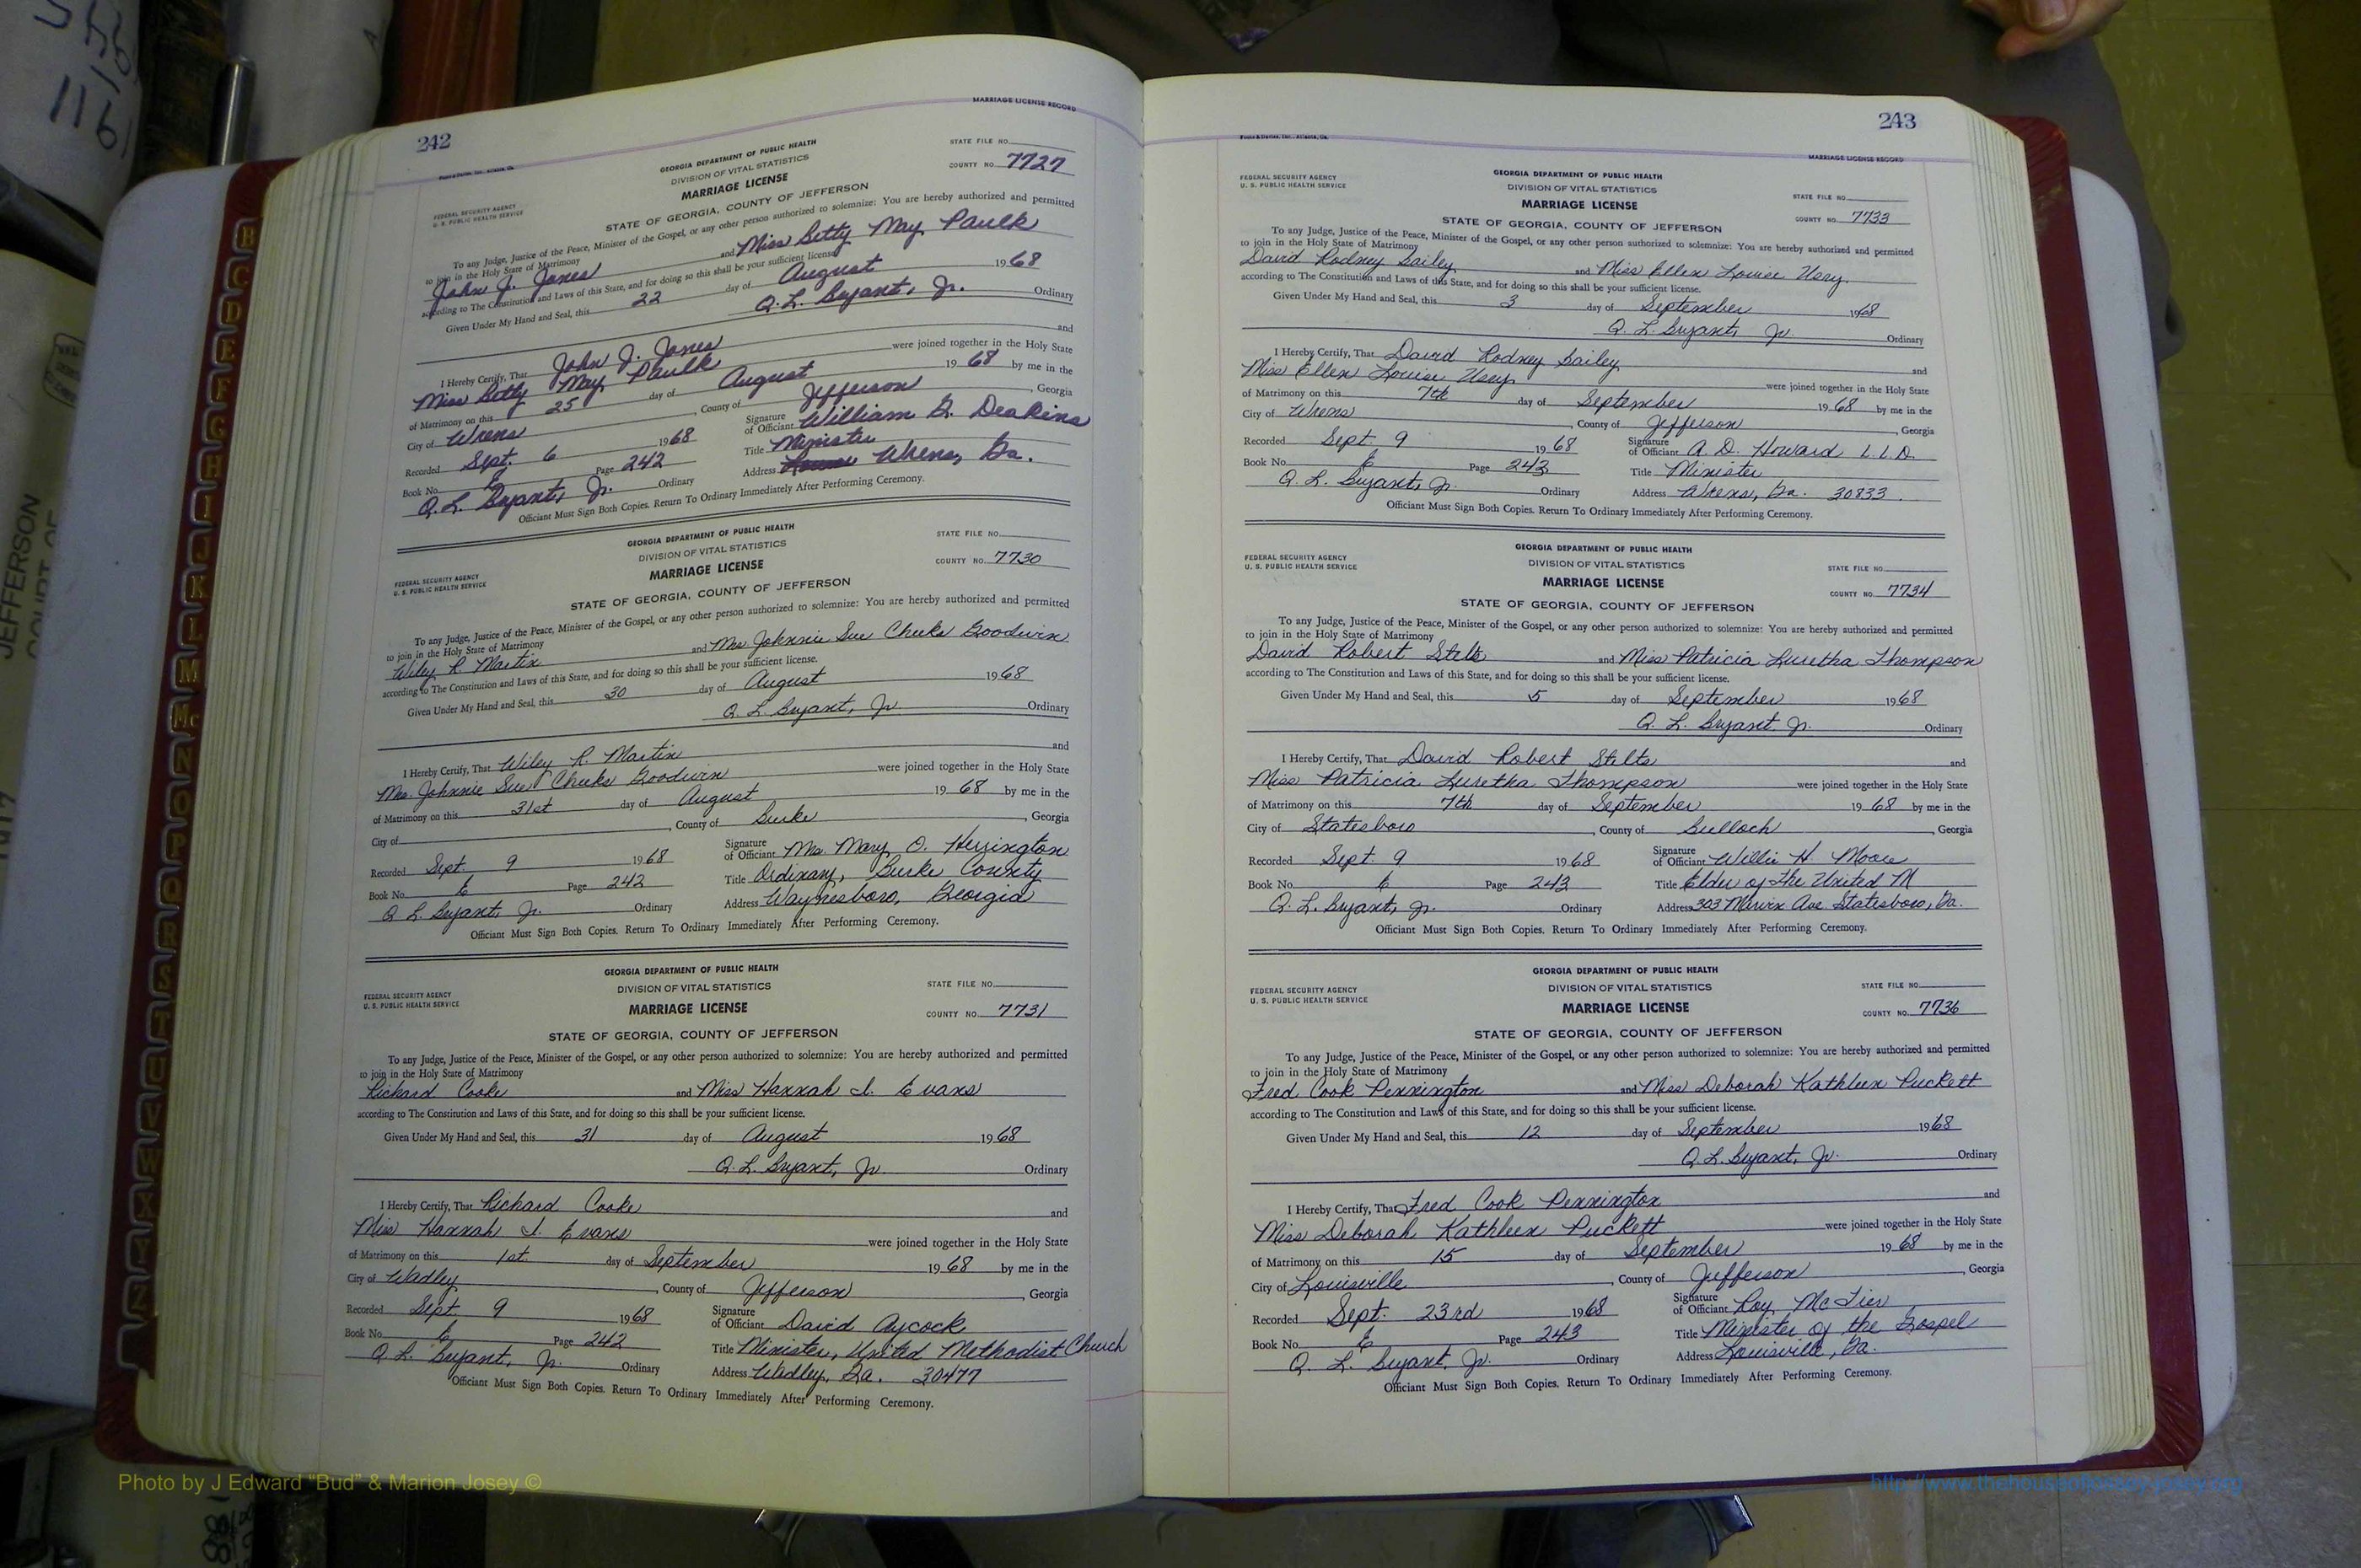 242
MARRIAGE LICENSE RECORD
GEORGIA DEPARTMENT OF PUBLIC HEALTH
DIVISION OF VITAL STATISTICS
MARRIAGE LICENSE
STATE OF GEORGIA, COUNTY OF JEFFERSON
STATE FILE NO.
COUNTY NO. 7727
FEDERAL SECURITY AGENCY
U. S. PUBLIC HEALTH SERVICE
To any Judge, Justice of the Peace, Minister of the Gospel, or any other person authorized to solemnize: You are hereby authorized and permitted
to join in the Holy State of Matrimony
John J. Jones and Miss Betty May Paulk
according to The Constitution and Laws of this State, and for doing so this shall be your sufficient license.
Given Under My Hand and Seal, this 22 day of August 1968
Q. L. Bryant, Jr. Ordinary
I Hereby Certify, That John J. Jones and
Miss Betty May Paulk were joined together in the Holy State
of Matrimony on this 25 day of August 1968 by me in the
City of Wrens, County of Jefferson, Georgia
Recorded Sept. 6 1968 Signature of Officiant William G. Deakins
Book No. E Page 242 Title Minister
Q. L. Bryant, Jr. Ordinary Address Wrens, Ga.
Officiant Must Sign Both Copies. Return To Ordinary Immediately After Performing Ceremony.
GEORGIA DEPARTMENT OF PUBLIC HEALTH
DIVISION OF VITAL STATISTICS
MARRIAGE LICENSE
STATE OF GEORGIA, COUNTY OF JEFFERSON
STATE FILE NO.
COUNTY NO. 7730
FEDERAL SECURITY AGENCY
U. S. PUBLIC HEALTH SERVICE
To any Judge, Justice of the Peace, Minister of the Gospel, or any other person authorized to solemnize: You are hereby authorized and permitted
to join in the Holy State of Matrimony
Wiley R. Martin and Mrs. Johnnie Sue Cheeks Goodwin
according to The Constitution and Laws of this State, and for doing so this shall be your sufficient license.
Given Under My Hand and Seal, this 30 day of August 1968
Q. L. Bryant, Jr. Ordinary
I Hereby Certify, That Wiley R. Martin and
Mrs. Johnnie Sue Cheeks Goodwin were joined together in the Holy State
of Matrimony on this 31st day of August 1968 by me in the
City of , County of Burke, Georgia
Recorded Sept. 9 1968 Signature of Officiant Mrs. Mary O. Herrington
Book No. E Page 242 Title Ordinary, Burke County
Q. L. Bryant, Jr. Ordinary Address Waynesboro, Georgia
Officiant Must Sign Both Copies. Return To Ordinary Immediately After Performing Ceremony.
GEORGIA DEPARTMENT OF PUBLIC HEALTH
DIVISION OF VITAL STATISTICS
MARRIAGE LICENSE
STATE OF GEORGIA, COUNTY OF JEFFERSON
STATE FILE NO.
COUNTY NO. 7731
FEDERAL SECURITY AGENCY
U. S. PUBLIC HEALTH SERVICE
To any Judge, Justice of the Peace, Minister of the Gospel, or any other person authorized to solemnize: You are hereby authorized and permitted
to join in the Holy State of Matrimony
Richard Cooke and Miss Hannah I. Evans
according to The Constitution and Laws of this State, and for doing so this shall be your sufficient license.
Given Under My Hand and Seal, this 31 day of August 1968
Q. L. Bryant, Jr. Ordinary
I Hereby Certify, That Richard Cooke and
Miss Hannah I. Evans were joined together in the Holy State
of Matrimony on this 1st. day of September 1968 by me in the
City of Wadley, County of Jefferson, Georgia
Recorded Sept. 9 1968 Signature of Officiant David Aycock
Book No. E Page 242 Title Minister, United Methodist Church
Q. L. Bryant, Jr. Ordinary Address Wadley, Ga. 30477
Officiant Must Sign Both Copies. Return To Ordinary Immediately After Performing Ceremony.
243
MARRIAGE LICENSE RECORD
FEDERAL SECURITY AGENCY
U. S. PUBLIC HEALTH SERVICE
GEORGIA DEPARTMENT OF PUBLIC HEALTH
DIVISION OF VITAL STATISTICS
MARRIAGE LICENSE
STATE OF GEORGIA, COUNTY OF JEFFERSON
STATE FILE NO.
COUNTY NO. 7733
To any Judge, Justice of the Peace, Minister of the Gospel, or any other person authorized to solemnize: You are hereby authorized and permitted
to join in the Holy State of Matrimony
David Rodney Bailey and Miss Ellen Louise Usry
according to The Constitution and Laws of this State, and for doing so this shall be your sufficient license.
Given Under My Hand and Seal, this 3 day of September 1968
Q. L. Bryant, Jr. Ordinary
I Hereby Certify, That David Rodney Bailey and
Miss Ellen Louise Usry were joined together in the Holy State
of Matrimony on this 7th day of September 1968 by me in the
City of Wrens, County of Jefferson, Georgia
Recorded Sept 9 1968 Signature of Officiant A. D. Howard L.L.D.
Book No. E Page 243 Title Minister
Q. L. Bryant, Jr. Ordinary Address Wrens, Ga. 30833.
Officiant Must Sign Both Copies. Return To Ordinary Immediately After Performing Ceremony.
GEORGIA DEPARTMENT OF PUBLIC HEALTH
DIVISION OF VITAL STATISTICS
MARRIAGE LICENSE
STATE OF GEORGIA, COUNTY OF JEFFERSON
STATE FILE NO.
COUNTY NO. 7734
FEDERAL SECURITY AGENCY
U. S. PUBLIC HEALTH SERVICE
To any Judge, Justice of the Peace, Minister of the Gospel, or any other person authorized to solemnize: You are hereby authorized and permitted
to join in the Holy State of Matrimony
David Robert Stilts and Miss Patricia Luretha Thompson
according to The Constitution and Laws of this State, and for doing so this shall be your sufficient license.
Given Under My Hand and Seal, this 5 day of September 1968
Q. L. Bryant, Jr. Ordinary
I Hereby Certify, That David Robert Stilts and
Miss Patricia Luretha Thompson were joined together in the Holy State
of Matrimony on this 7th day of September 1968 by me in the
City of Statesboro, County of Bulloch, Georgia
Recorded Sept. 9 1968 Signature of Officiant Willie H. Moore
Book No. E Page 243 Title Elder of the United M
Q. L. Bryant, Jr. Ordinary Address 303 Marvin Ave Statesboro, Ga.
Officiant Must Sign Both Copies. Return To Ordinary Immediately After Performing Ceremony.
GEORGIA DEPARTMENT OF PUBLIC HEALTH
DIVISION OF VITAL STATISTICS
MARRIAGE LICENSE
STATE OF GEORGIA, COUNTY OF JEFFERSON
STATE FILE NO.
COUNTY NO. 7736
FEDERAL SECURITY AGENCY
U. S. PUBLIC HEALTH SERVICE
To any Judge, Justice of the Peace, Minister of the Gospel, or any other person authorized to solemnize: You are hereby authorized and permitted
to join in the Holy State of Matrimony
Fred Cook Pennington and Miss Deborah Kathleen Puckett
according to The Constitution and Laws of this State, and for doing so this shall be your sufficient license.
Given Under My Hand and Seal, this 12 day of September 1968
Q. L. Bryant, Jr. Ordinary
I Hereby Certify, That Fred Cook Pennington and
Miss Deborah Kathleen Puckett were joined together in the Holy State
of Matrimony on this 15 day of September 1968 by me in the
City of Louisville, County of Jefferson, Georgia
Recorded Sept. 23rd 1968 Signature of Officiant Roy McTier
Book No. E Page 243 Title Minister of the Gospel
Q. L. Bryant, Jr. Ordinary Address Louisville, Ga.
Officiant Must Sign Both Copies. Return To Ordinary Immediately After Performing Ceremony.
B
C
D
E
F
G
H
I
J
K
L
M
Mc
N
O
P
Q
R
S
T
U
V
W
X
Y
Z
JEFFERSON
Photo by J Edward “Bud” & Marion Josey ©